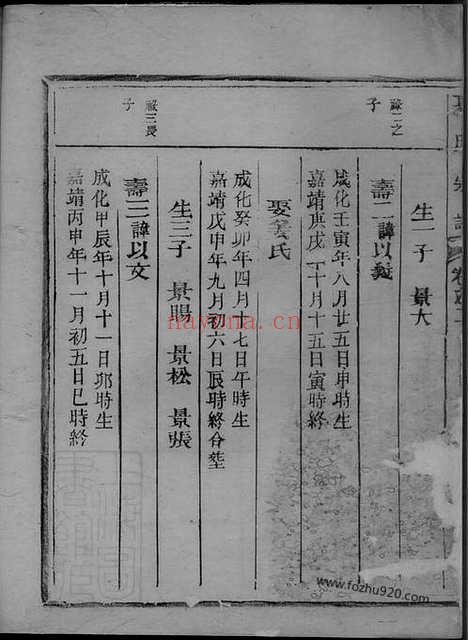 生一子 景大
祿二之
子
壽一諱以
成化壬寅年八月廿五日申時生
嘉靖庚戌十月十五日寅時終
娶姜氏
成化癸卯年四月十七日午時生
嘉靖戊申年九月初六日辰時終合塟
生三子 景賜 景松 景張
祿三長
子
壽三諱以文
成化甲辰年十月十一日卯時生
嘉靖丙申年十一月初五日巳時終
nayona.cn
www.fozhu920.com